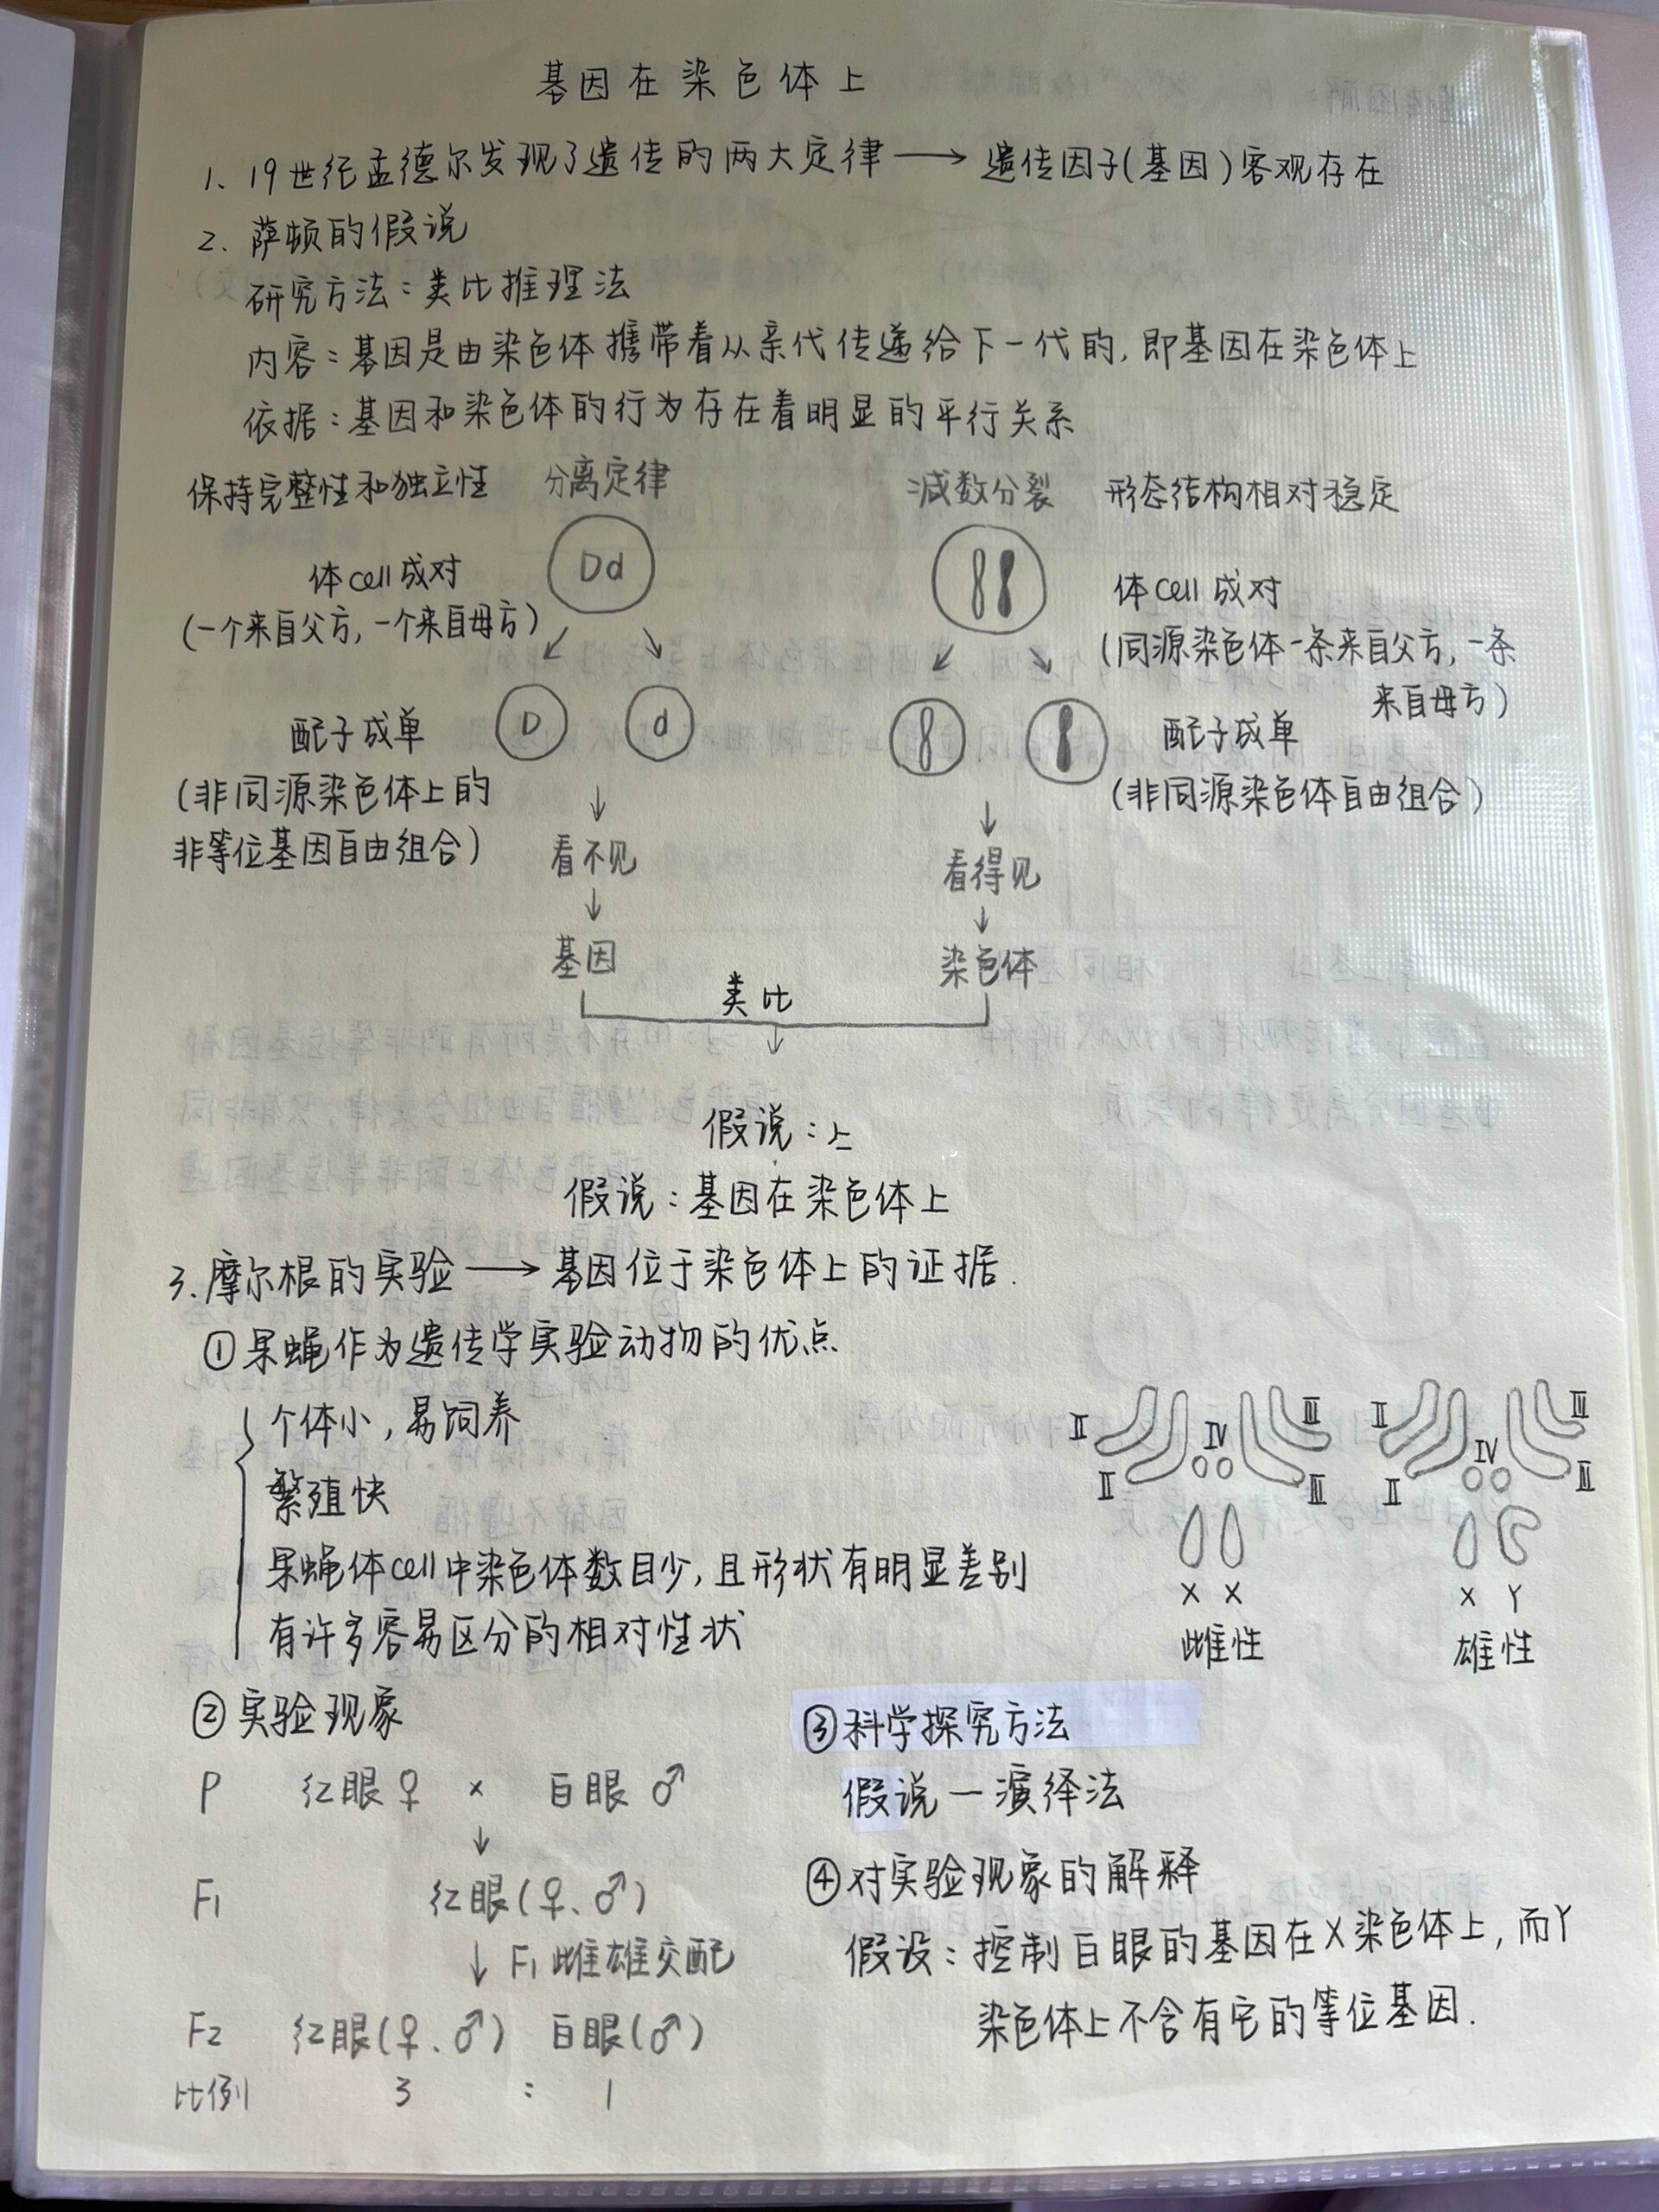 基因在染色体上
1、19世纪孟德尔发现了遗传的两大定律⟶遗传因子(基因)客观存在
2、萨顿的假说
研究方法：类比推理法
内容：基因是由染色体携带着从亲代传递给下一代的，即基因在染色体上
依据：基因和染色体的行为存在着明显的平行关系
保持完整性和独立性 分离定律 减数分裂 形态结构相对稳定
体cell成对 Dd 体cell成对
(一个来自父方，一个来自母方) (同源染色体一条来自父方，一条
来自母方)
配子成单 D d 配子成单
(非同源染色体上的 (非同源染色体自由组合)
非等位基因自由组合) ↓看不见 ↓看得见
↓基因 ↓染色体
类比
↓
假说：上
假说：基因在染色体上
3.摩尔根的实验⟶基因位于染色体上的证据.
①果蝇作为遗传学实验动物的优点
个体小，易饲养
繁殖快
果蝇体cell中染色体数目少，且形状有明显差别
有许多容易区分的相对性状
Ⅱ Ⅳ Ⅲ Ⅱ Ⅳ Ⅲ
Ⅱ Ⅲ Ⅱ Ⅲ
X X X Y
雌性 雄性
②实验现象
P 红眼♀ × 白眼♂
↓
F1 红眼(♀、♂)
↓F1雌雄交配
F2 红眼(♀、♂) 白眼(♂)
比例 3 : 1
③科学探究方法
假说一演绎法
④对实验现象的解释
假设：控制白眼的基因在X染色体上，而Y
染色体上不含有它的等位基因.